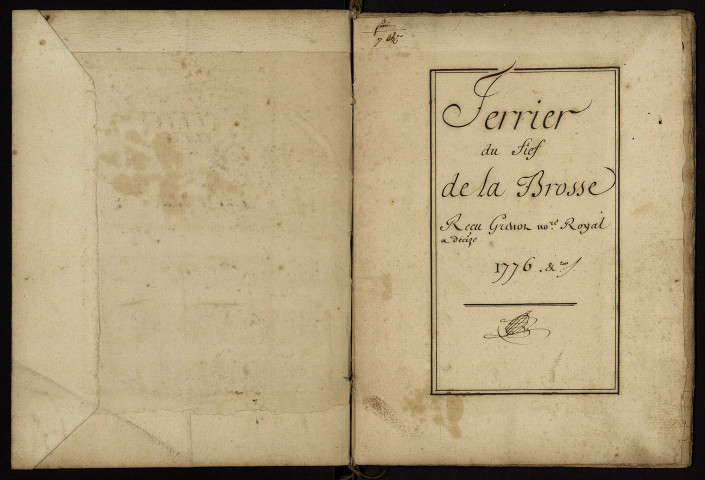 Terrier
du fief
de la Brosse
Reçu Grenot no.re Royal
a decize
1776 &